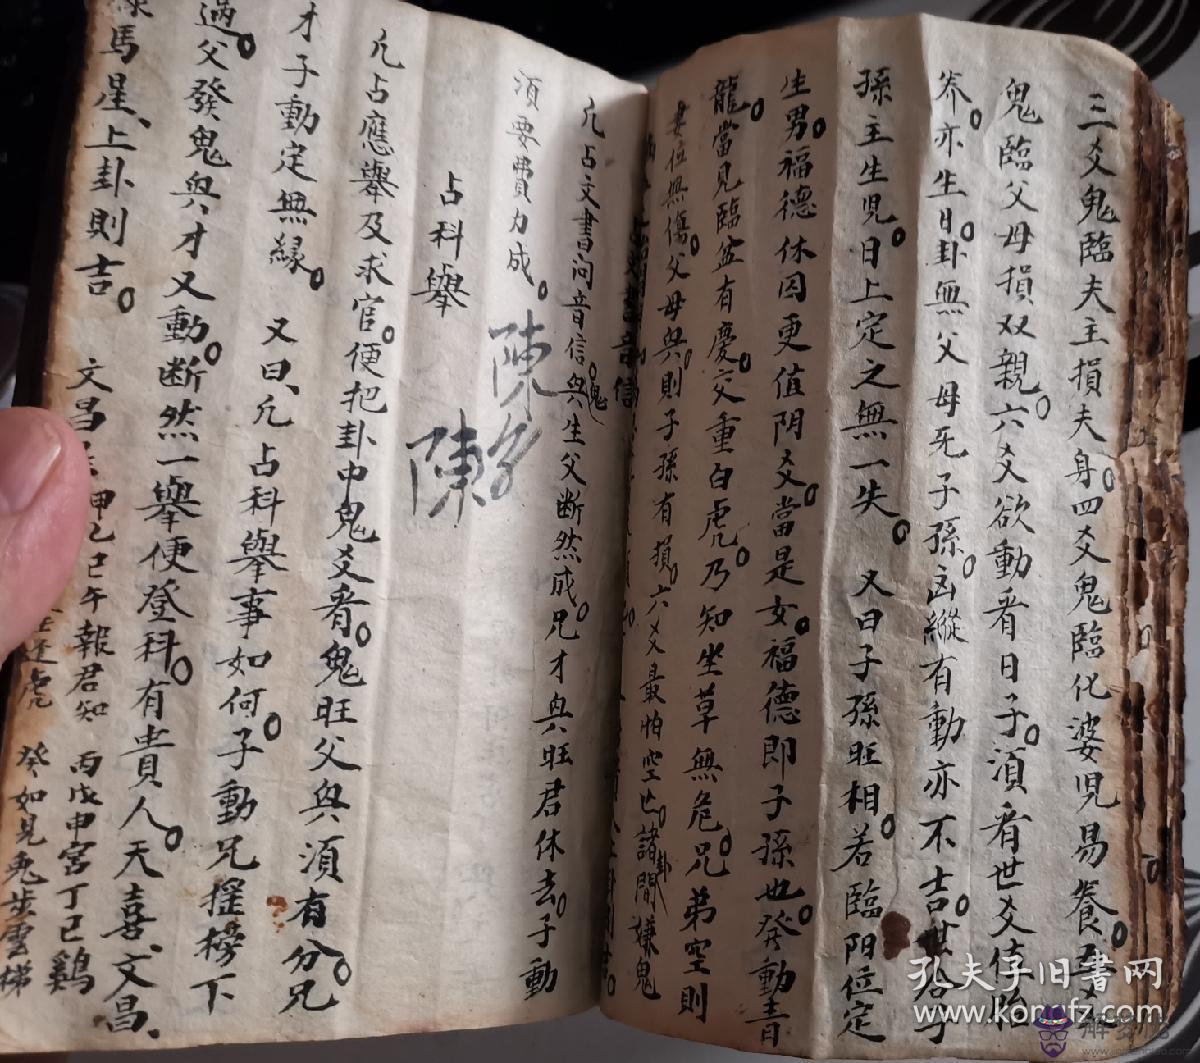 三爻鬼臨夫主損夫身四爻鬼臨化婆児易養五爻
鬼臨父母損双親六爻欲動看日子須看世爻值胎
养亦生日卦無父母死子孫凶縱有動亦不吉世合子
孫主生児日上定之無一失 又曰子孫旺相若臨阳位定
生男福德休囚更值阴爻當是女福德即子孫也發動青
龍當見臨盆有慶交重白虎乃知坐草無危兄弟空则
妻位無傷父母兴則子孫有損六爻最怕空亡諸卦間嫌鬼
凡占文書问音信兴鬼生父断然成兄才兴旺君休去子動
須要費力成
陳
占科舉
陳
凡占應舉及求官便把卦中鬼爻看鬼旺父兴須有分兄
才子動定無緣 又曰凡占科舉事如何子動兄摇榜下
過父發鬼兴才又動断然一舉便登科有貴人天喜文昌
馬星上卦則吉
文昌 甲乙巳午報君知 丙戊申宮丁己鷄
虎 癸如見兎步雲梯
孔夫子旧书网
www.kongfz.com